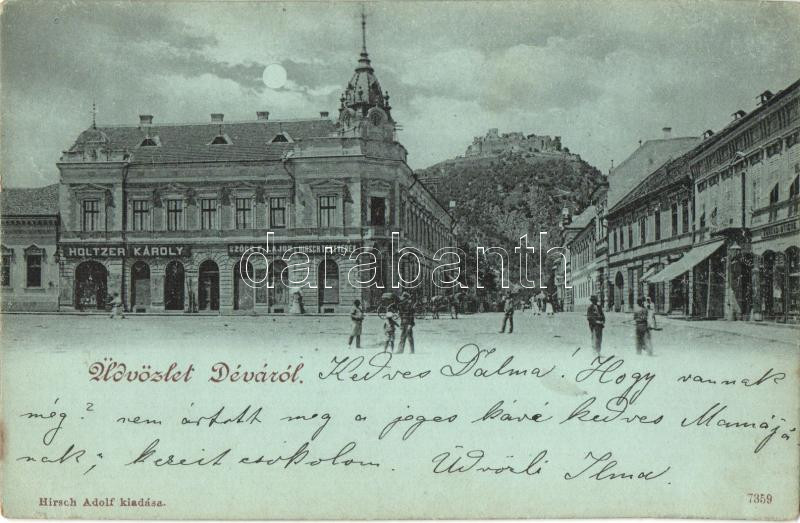 HOLTZER KÁROLY
darabanth
Üdvözlet Déváról.
Kedves Dalma! Hogy vannak
még? nem ártott meg a jeges kávé kedves Mamájá
nak, kezeit csókolom. Üdvözli Ilma.
Hirsch Adolf kiadása.
7359